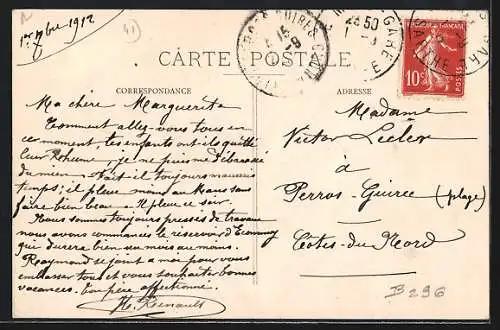 1er 7bre 1912
41
CARTE POSTALE
CORRESPONDANCE
ADRESSE
10c
POSTES
GARE
SARTHE
Ma chère Marguerite
Comment allez-vous tous en
ce moment, les enfants ont-ils quitté
leur Rhume, je ne puis me débarassé
du mien Fait-il toujours mauvais
temps; il pleut moins au Mans sans
faire bien beau - Il pleut ce soir.
Nous sommes toujours pressés de travaux
nous avons commencés le réservoir d'
qui durera bien six mois au moins.
Raymond se joint a moi pour vous
embrasser tous et vous souhaiter bonnes
vacances. Ton père affectionné.
H. Renault
Madame
Victor Leclex
à
Perros-Guirec (plage)
Côtes-du-Nord
B 296